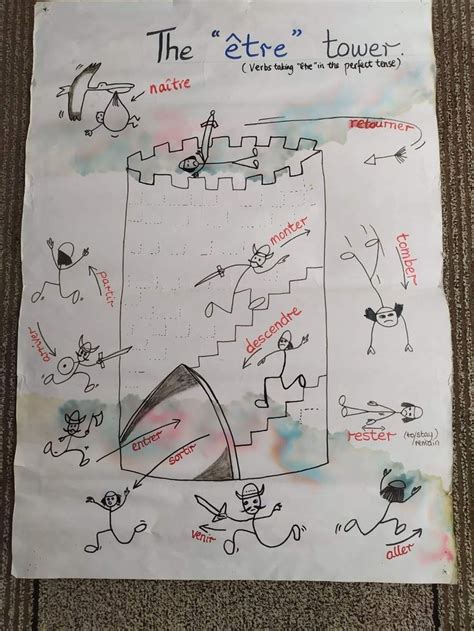 The "être" tower.
(Verbs taking "être" in the perfect tense)
naître
retourner
monter
tomber
partir
descendre
arriver
entrer
rester
(to/stay)
remain
sortir
venir
aller